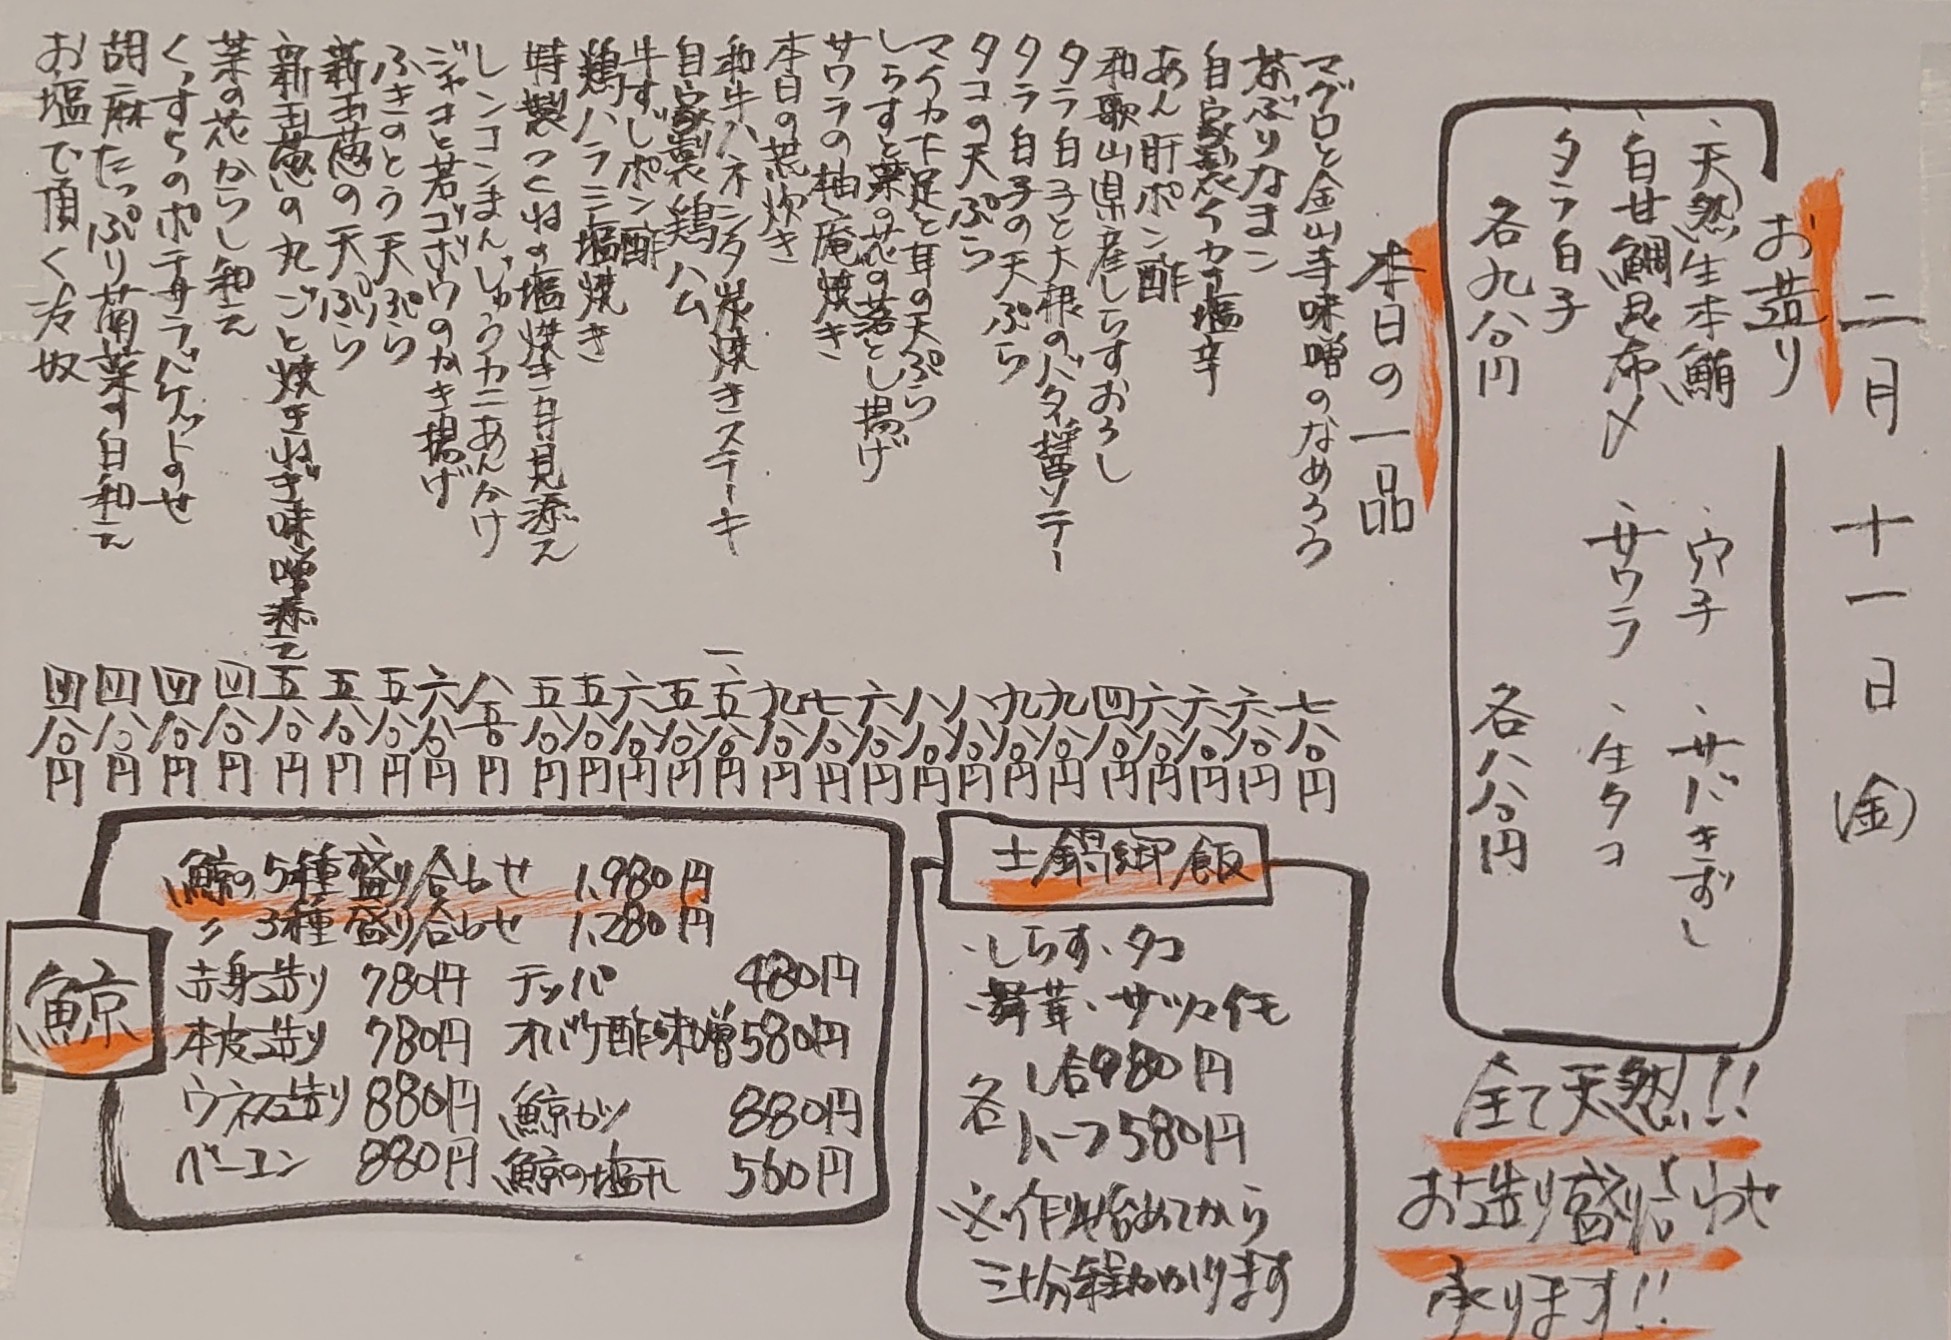 二月十一日(金)
お造り
、天然生本鮪 、穴子 、サバきずし
、白甘鯛昆布〆 、サワラ 、生タコ
、タラ白子
各九八〇円 各八八〇円
全て天然!!
お造り盛り合わせ
承ります!!
本日の一品
マグロと金山寺味噌のなめろう 七八〇円
茶ぶりなまこ 六八〇円
自家製イカ塩辛 六八〇円
あん肝ポン酢 六八〇円
和歌山県産しらすおろし 四八〇円
タラ白子と大根のバタ醤ソテー 九八〇円
タラ白子の天ぷら 九八〇円
タコの天ぷら 八八〇円
マイカ下足と耳の天ぷら 八八〇円
しらすと菜の花の落とし揚げ 六八〇円
サワラの柚庵焼き 七八〇円
本日の荒炊き 九八〇円
和牛ハネシタ炭焼きステーキ 一、五八〇円
自家製鶏ハム 五八〇円
牛すじポン酢 六八〇円
鶏ハラミ塩焼き 五八〇円
特製つくねの塩焼き月見添え 五八〇円
レンコンまんじゅうカニあんかけ 八五〇円
ジャコと若ゴボウのかき揚げ 六八〇円
ふきのとう天ぷら 五八〇円
新玉葱の天ぷら 五八〇円
新玉葱の丸ごと焼きねぎ味噌添え 五八〇円
菜の花からし和え 四八〇円
くっすらのポテサラバゲットのせ 四八〇円
胡麻たっぷり菊菜の白和え 四八〇円
お塩で頂く冷奴 四八〇円
土鍋御飯
・しらす・タコ
・舞茸・サツマイモ
各 1合980円
ハーフ580円
※作り始めてから
三十分程かかります
鯨
鯨の5種盛り合わせ 1,980円
〃 3種盛り合わせ 1,280円
赤身造り 780円 テッパ 480円
本皮造り 780円 オバケ酢味噌 580円
ウネス造り 880円 鯨カツ 880円
ベーコン 880円 鯨の塩干 560円